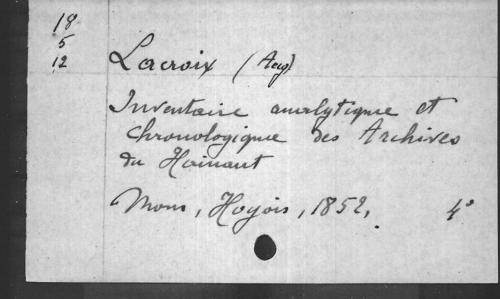 18
5
12
Lacroix (Aug)
Inventaire analytique et
chronologique des Archives
du Hainaut
Mons, Hoyois, 1852. 4°